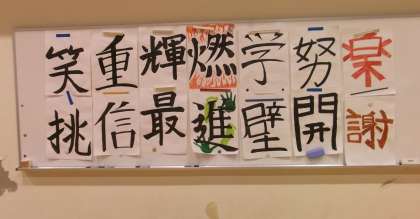 笑重輝燃学努楽
挑信最進壁開謝